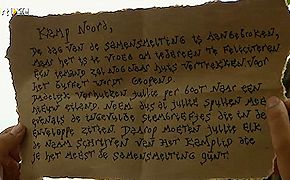 Kamp Noord,
De dag van de samensmelting is aangebroken,
maar het is te vroeg om iedereen te feliciteren
Een iemand zal nog naar huis vertrekken voor
het buffet wordt geopend.
Dadelijk verhuizen jullie per boot naar een
nieuw eiland. Neem dus al jullie spullen mee
evenals de ingevulde stembriefjes die in de
enveloppe zitten. Daarop moeten jullie elk
de naam schrijven van het kamplid die
je het meest de samensmelting gunt